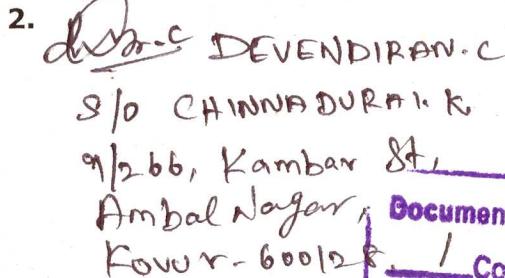 2.
DEVENDIRAN. C
S/O CHINNADURAI. K
9/266, Kambar St,
Ambal Nagar,
Kovur - 600128.
Documen
1 Co